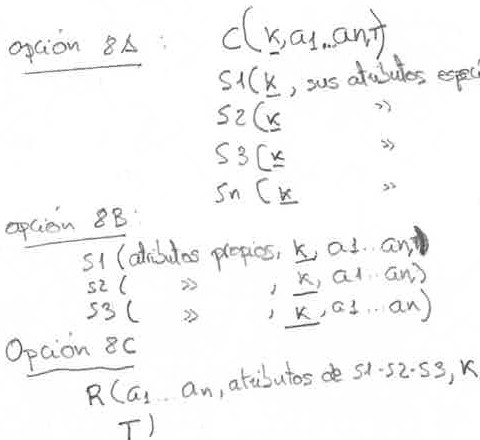 opción 8A : C(k, a1..an,T)
S1(k, sus atributos especí
S2(k »
S3(k »
Sn (k »
opción 8B:
S1 (atributos propios, k, a1..an)
S2 ( » , k, a1..an)
S3 ( » , k, a1...an)
Opción 8C
R(a1...an, atributos de S1-S2-S3, K
T)